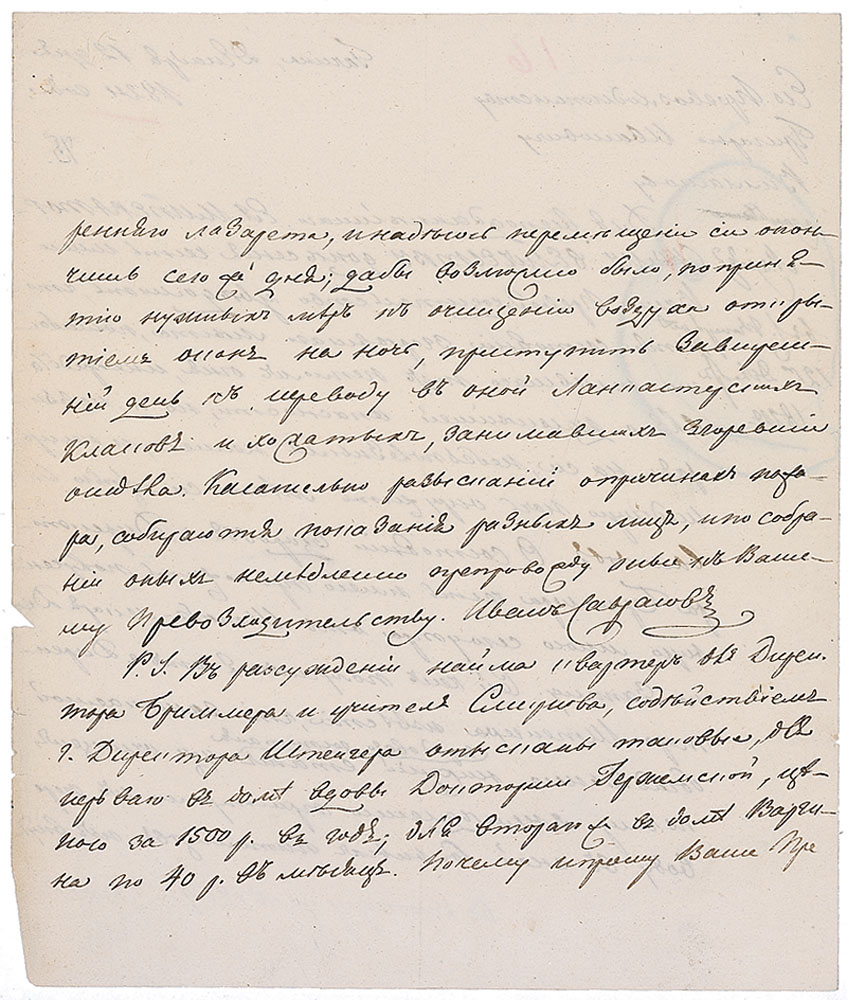 реннаго лазарета, и надѣюсь перемѣщеніи сіи окон-
чишь сего ж дня; дабы возможно было, по приня-
тію нужныхъ мѣръ къ очищенію воздуха откры-
тіемъ оконъ на ночь, приступить завтреш-
ній день къ переводу въ оной Ланкастерскихъ
Классовъ и хожатыхъ, занимавшихъ згоревшій
Касательно разысканій о причинахъ пожа-
ра, собираются показанія разныхъ лицъ, и по собра-
ніи оныхъ немѣдленно препровожду оные къ Ваше-
му Превозходительству. Иванъ Саврасовъ
P. S. Въ разсужденіи найма квартеръ для Дирек-
тора Бриммера и учителя Смирнова, содѣйствіемъ
г. Директора Штенгера отысканы таковые, для
перьваго въ домѣ вдовы Докторши Гержемской, цѣ-
ною за 1500 р. въ годъ; для втораго ж въ домѣ Варги-
на по 40 р. въ мѣсяцъ. Почему и прошу Ваше Пре